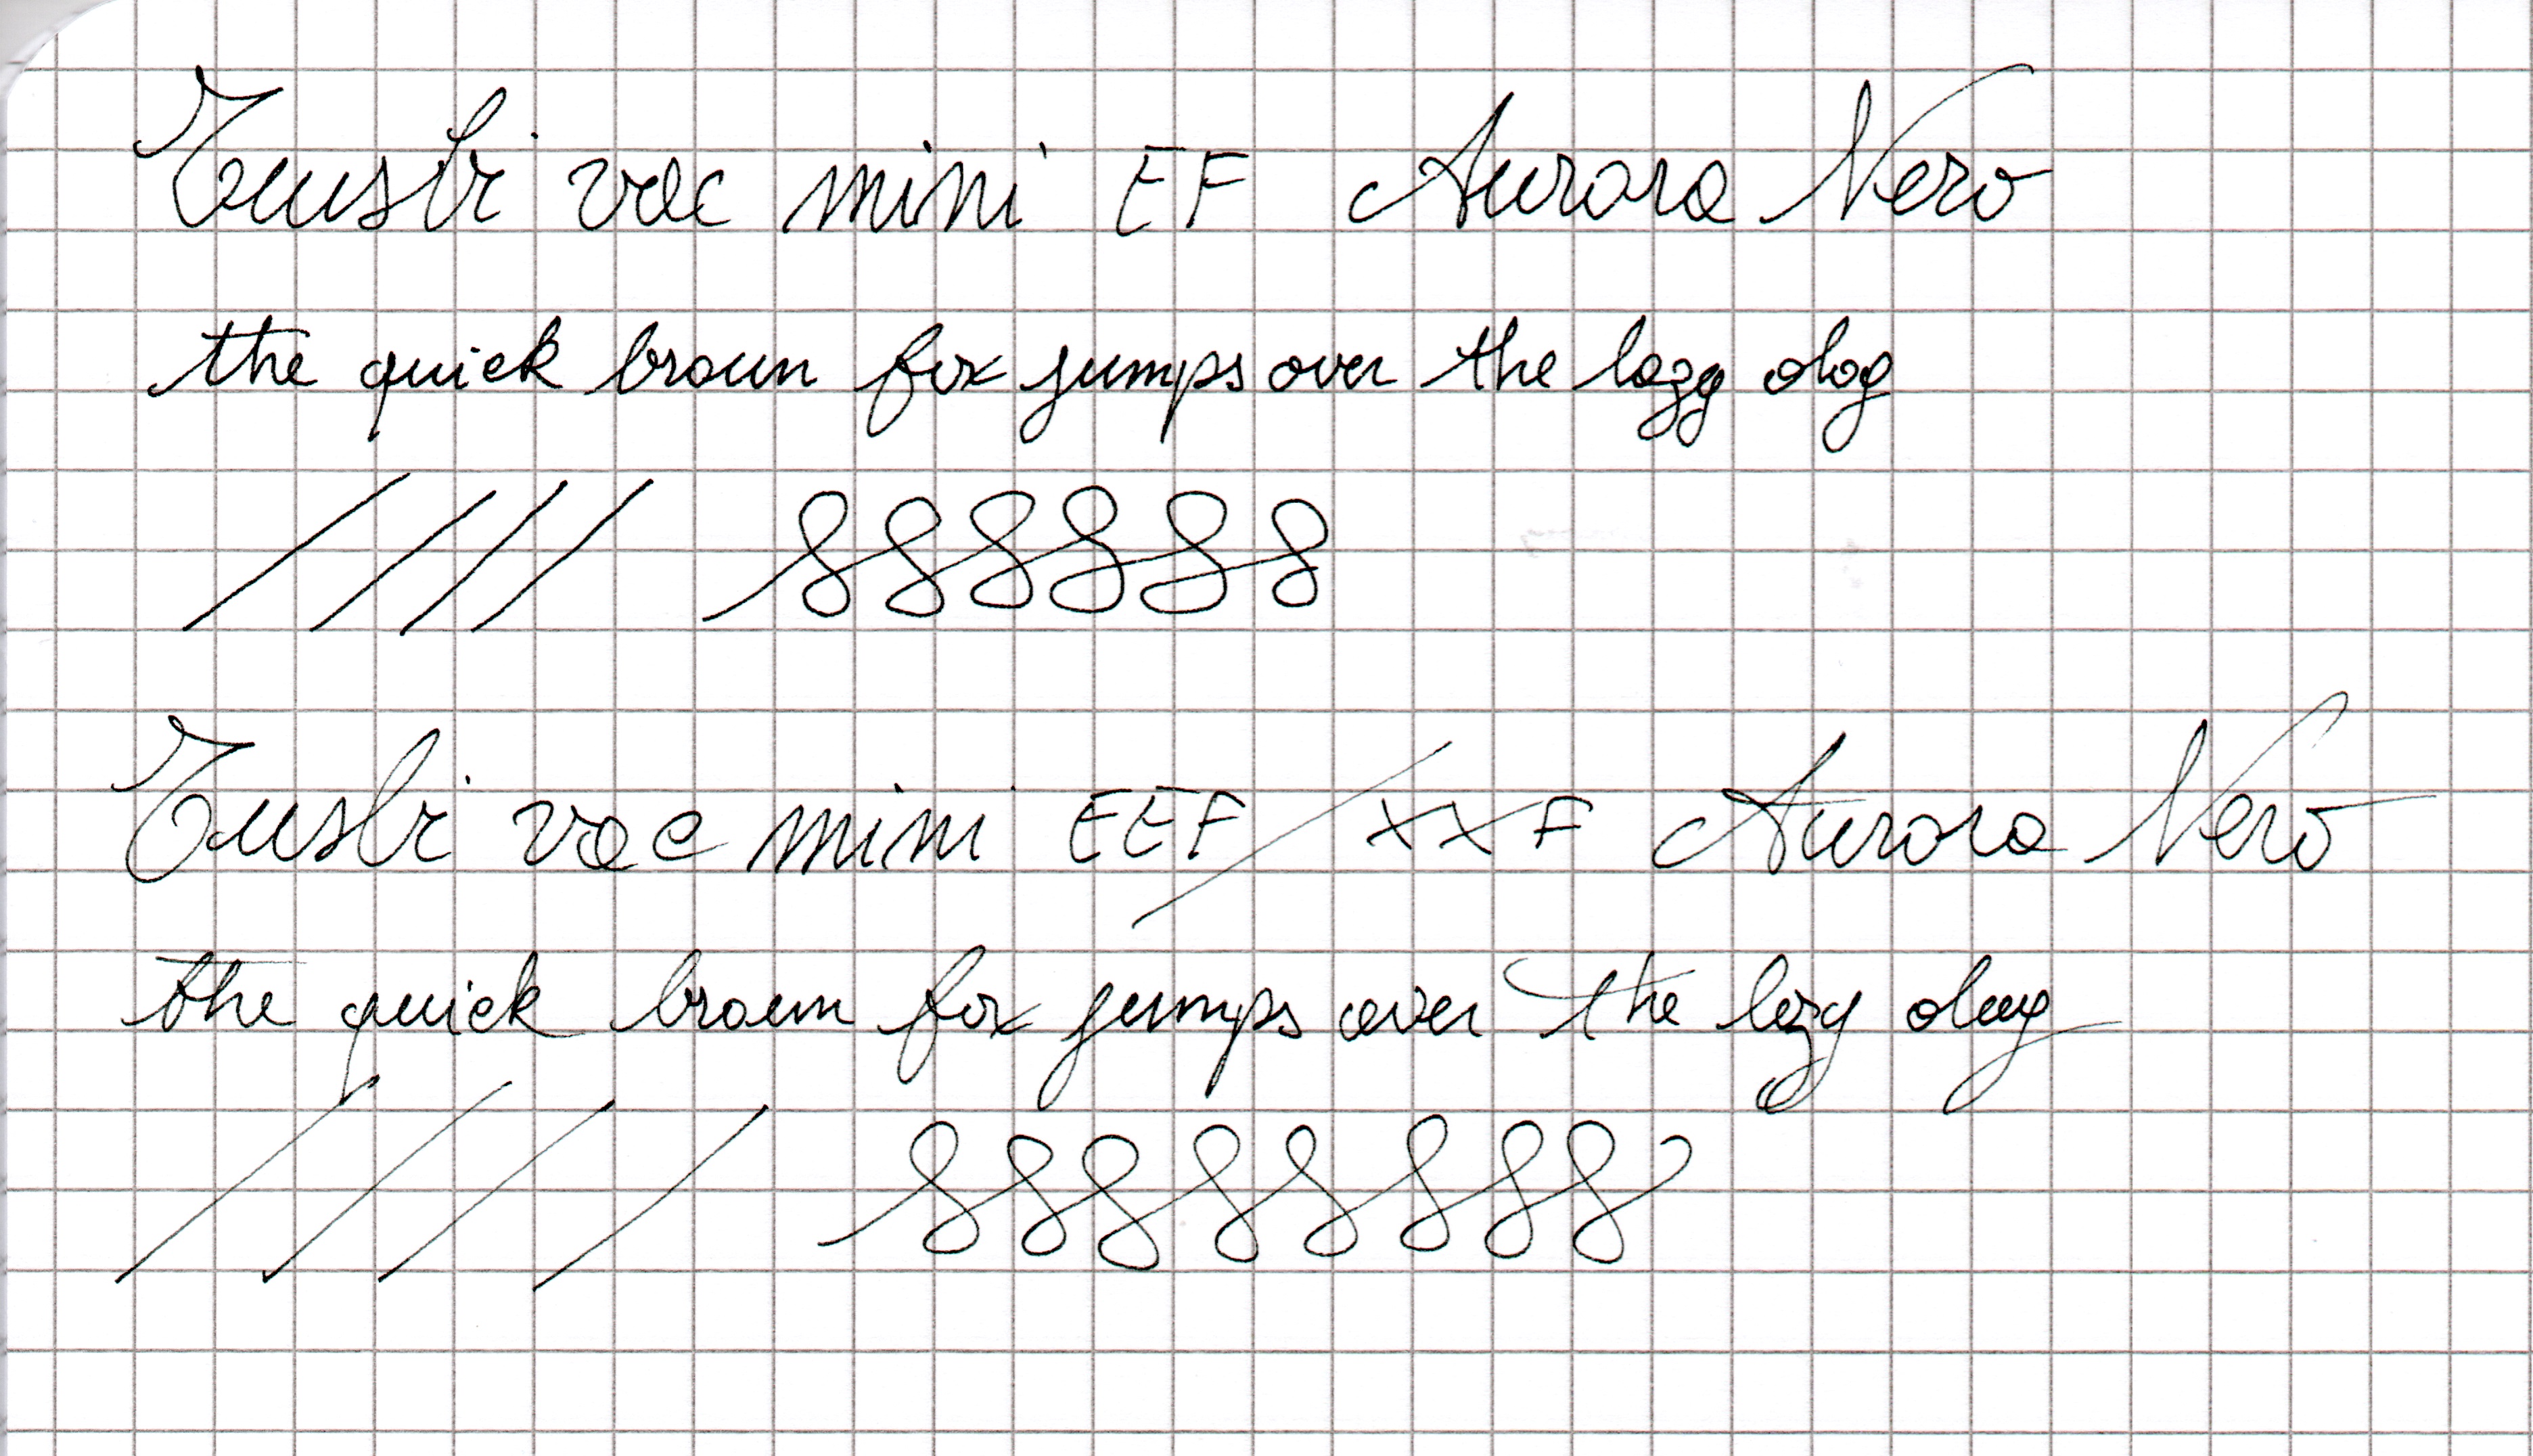 Twsbi vac mini EF Aurora Nero
the quick brown fox jumps over the lazy dog
Twsbi vac mini EEF / XXF Aurora Nero
the quick brown fox jumps over the lazy dog